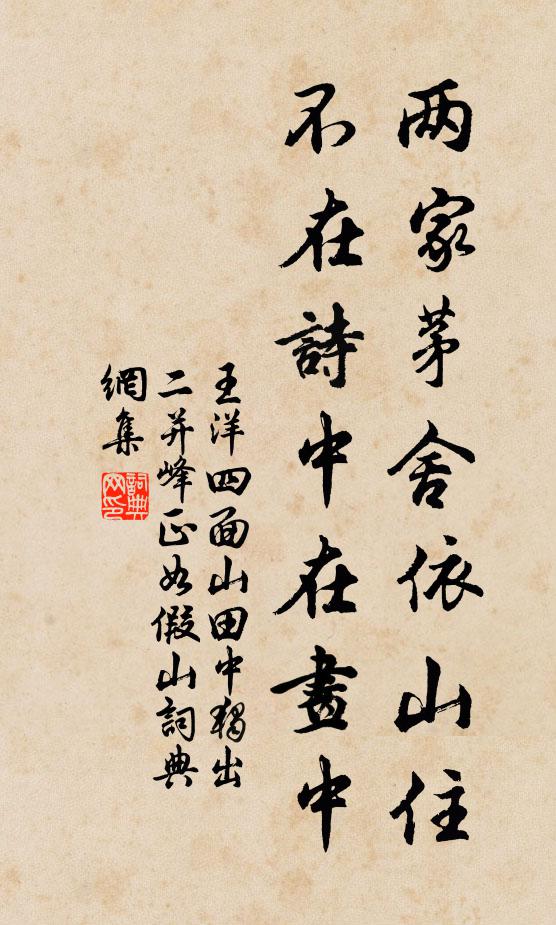 两家茅舍依山住
不在詩中在畫中
王洋四面山田中獨出
二并峰正如假山詞典
網集
詞典
网印